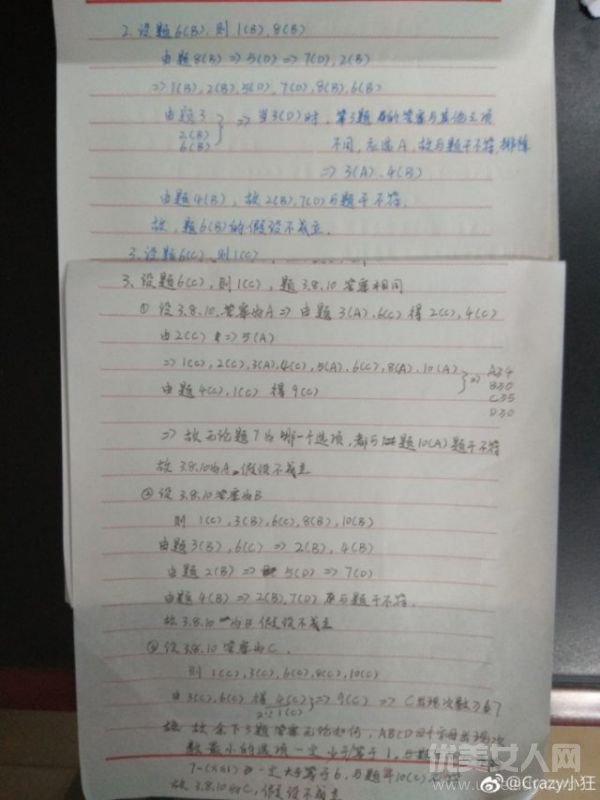 2. 设题6(B),则1(B),8(B)
由题8(B)⇒5(D)⇒7(D),2(B)
⇒1(B),2(B),5(D),7(D),8(B),6(B)
由题3
2(B)
6(B)
} ⇒当3(D)时,第3题的答案与其他三项
不同,应选A,故与题干不符,排除
⇒3(A).4(B)
由题4(B),故2(B),7(D)与题干不符.
故,题6(B)的假设不成立.
3.设题6(C),则1(C)
3、设题6(C),则1(C),题3.8.10答案相同
①设3.8.10.答案为A⇒由题3(A).6(C)得2(C),4(C)
由2(C)⇒5(A)
⇒1(C),2(C),3(A),4(C),5(A),6(C),8(A),10(A)
由题4(C),1(C)得9(C)
}⇒
C
D
⇒故无论题7为哪一个选项,都与题10(A)题干不符
故3.8.10为A。假设不成立
②设3.8.10答案为B
则1(C),3(B),6(C),8(B),10(B)
由题3(B),6(C)⇒2(B),4(B)
由题2(B)⇒5(D)⇒7(D)
由题4(B)⇒2(B),7(D)与题干不符.
故3.8.10为B假设不成立
③设3.8.10答案为C.
则1(C),3(C),6(C),8(C),10(C)
由3(C),6(C)得4(C)
}⇒9(C)⇒C出现次数≥6
故余下3题答案无论如何,ABCD四个字母出现次
数最小的选项一定少于等于1.
一定大于等于6,与题干10(C)不符
故3.8.10为C,假设不成立
优美女人网
@Crazy小狂